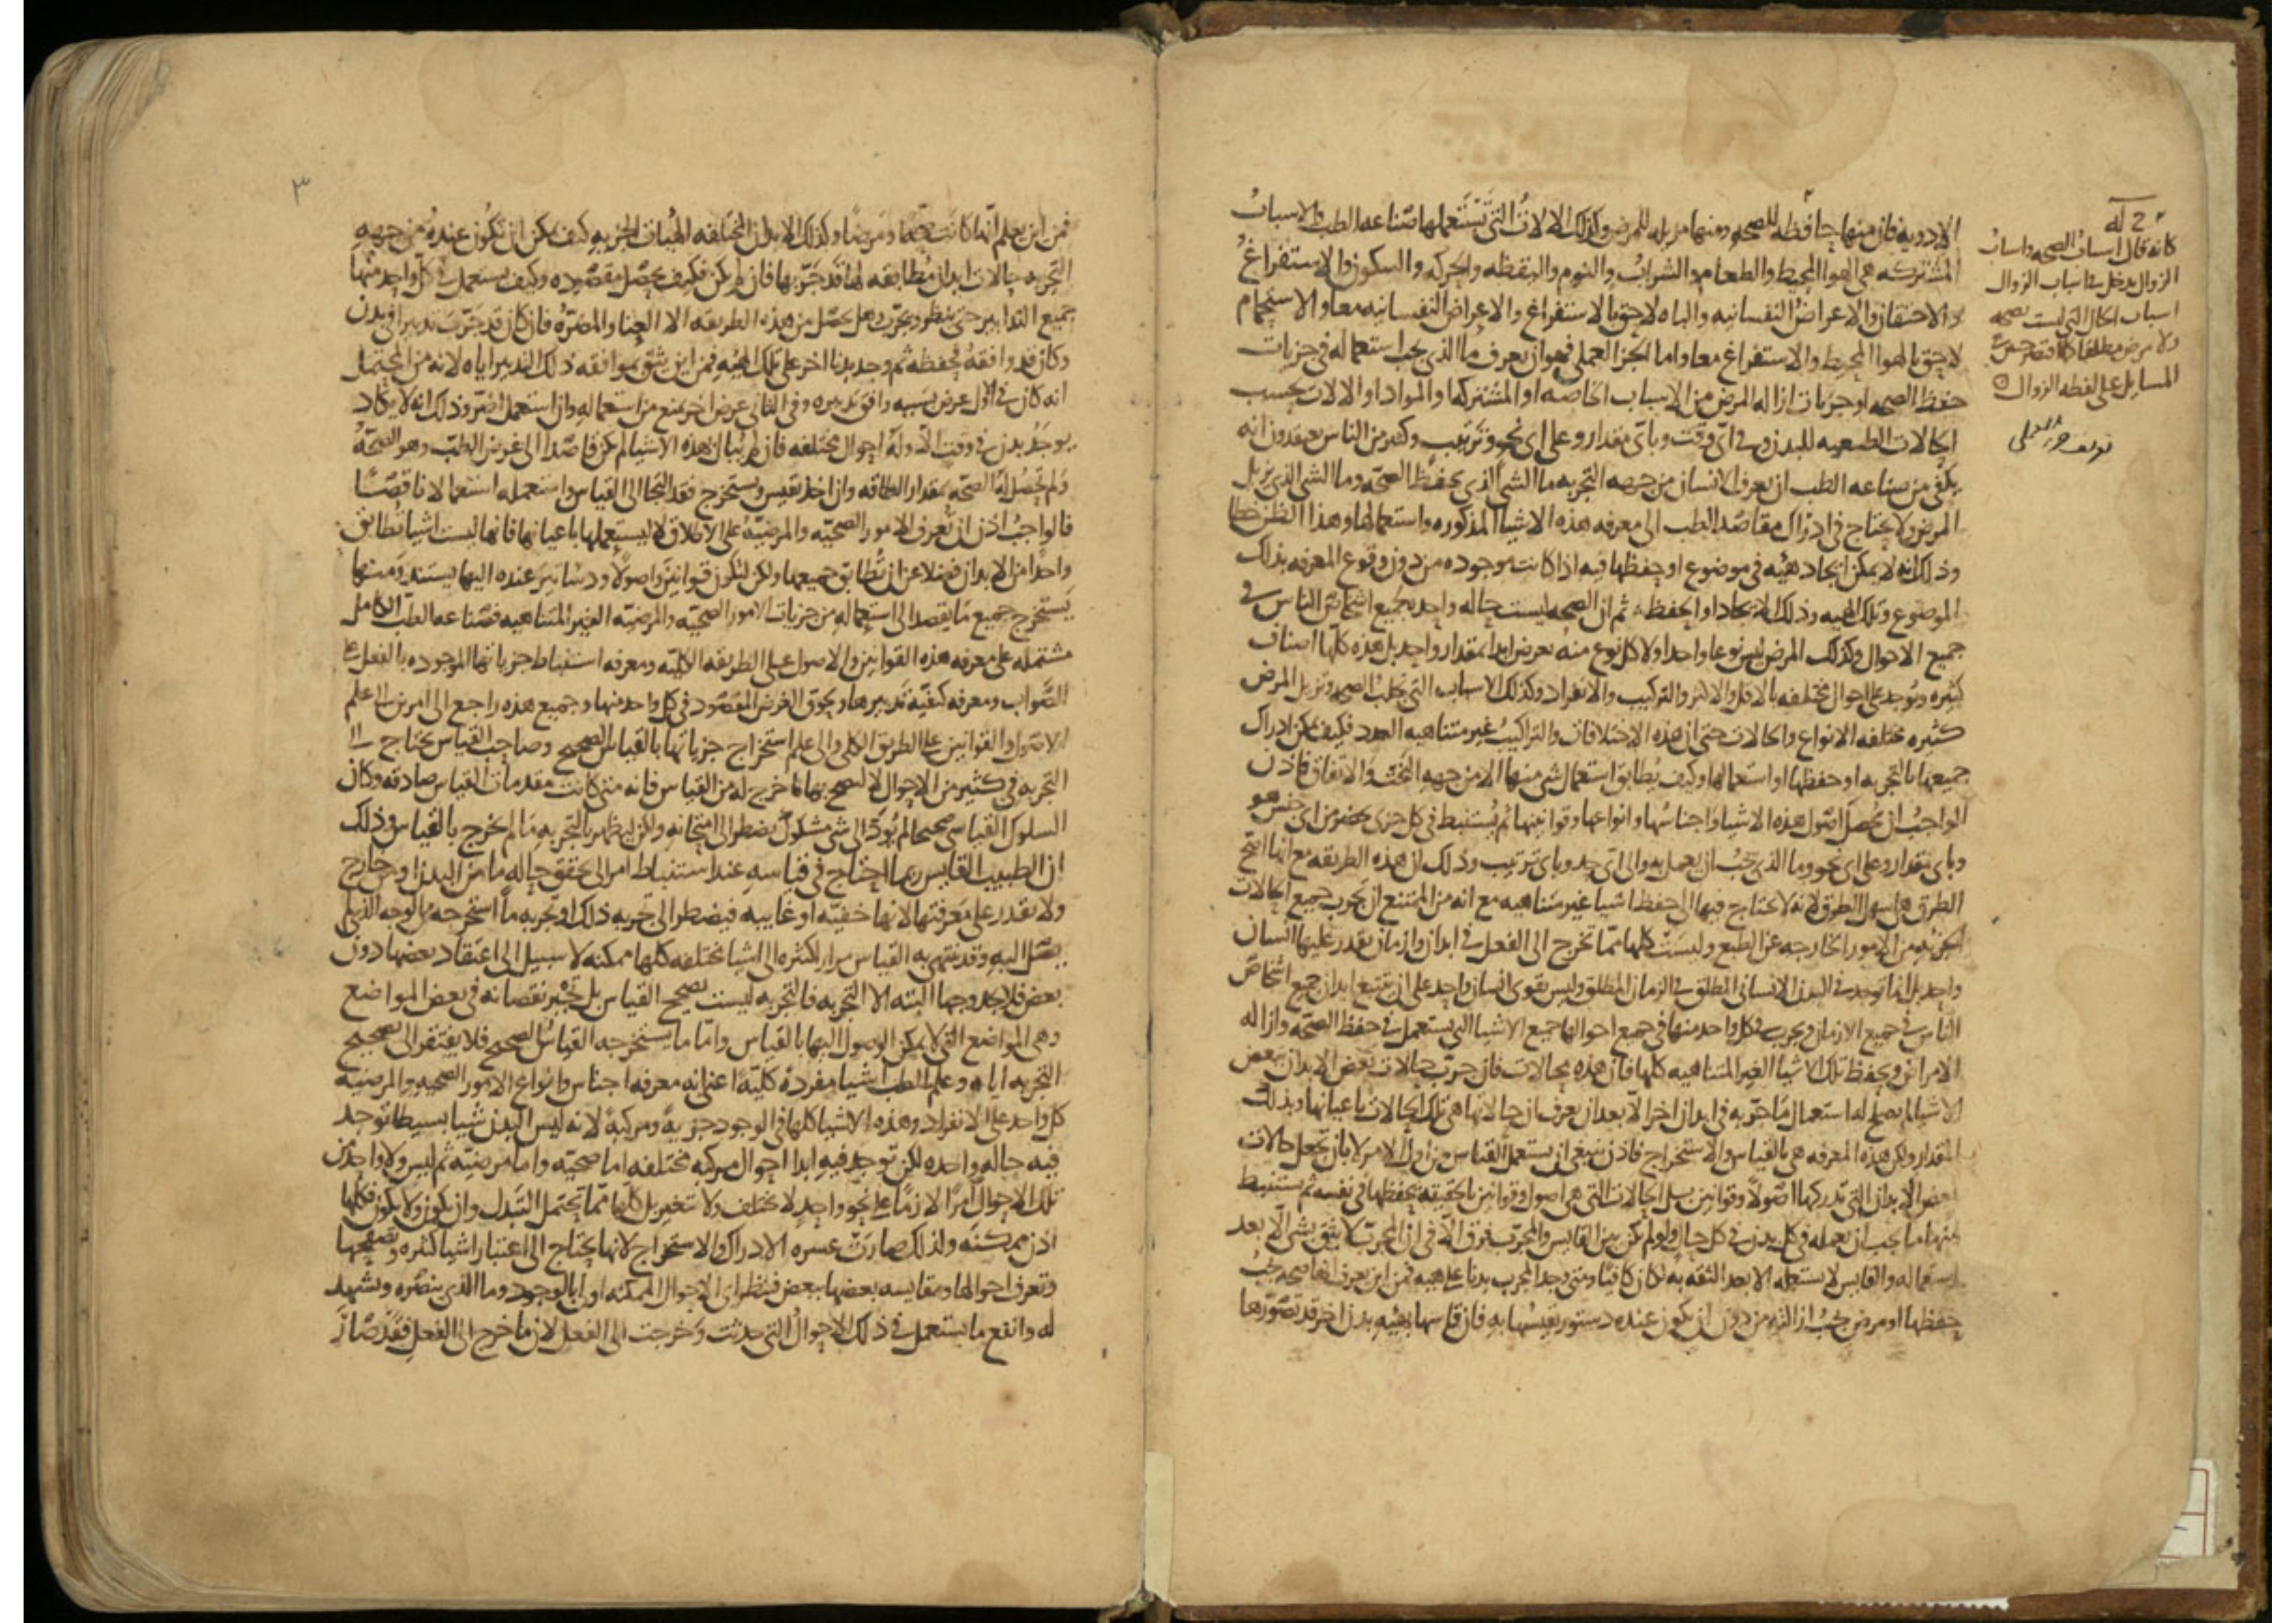 الادويه فان منها حافظه للصحه ومنها مزيله للمرض وكذلك الالات التي تستعملها صناعه الطب والاسباب
المشتركه هي الهوا المحيط والطعام والشراب والنوم واليقظه والحركه والسكون والاستفراغ
والاحتقان والاعراض النفسانيه والباه لاحق بالاستفراغ والاعراض النفسانيه معا والاستحمام
لاحق بالهوا المحيط والاستفراغ معا واما الجز العملي فهو ان يعرف ما الذي يجب استعماله في جزيات
حفظ الصحه او جزيات ازاله المرض من الاسباب الخاصه او المشتركه او المواد او الالات بحسب
الحالات الطبيعيه للبدن وفي اي وقت وباي مقدار وعلى اي نحو وترتيب وكثير من الناس يعتقدون انه
يكفي من صناعه الطب ان يعرف الانسان من جهه التجربه ما الشي الذي يحفظ الصحه وما الشي الذي يزيل
المرض ولا يحتاج في ادراك مقاصد الطب الى معرفه هذه الاشيا المذكوره واستعمالها وهذا الظن خطا
وذلك انه لا يمكن ايجاد هيئه في موضوع او حفظها فيه اذا كانت موجوده من دون وقوع المعرفه بذلك
الموضوع وتلك الهيه وذلك الايجاد او الحفظ ثم ان الصحه ليست حاله واحده لجميع اشخاص الناس في
جميع الاحوال وكذلك المرض ليس نوعا واحدا ولا كل نوع منه يعرض ابدا بمقدار واحد بل هذه كلها اصناف
كثيره وتوجد على احوال مختلفه بالاقل والاكثر والتركيب والانفراد وكذلك الاسباب التي تجلب الصحه وتزيل المرض
كثيره مختلفه الانواع والحالات حتى ان هذه الاختلافات والتراكيب غير متناهيه العدد فكيف يمكن ادراك
جميعها بالتجربه او حفظها او استعمالها وكيف يطابق استعمال شي منها الا من جهه البخت والاتفاق فاذن
الواجب ان تحصل اصول هذه الاشيا واجناسها وانواعها وقوانينها ثم يستنبط في كل جزى يحضر من اي جنس هو
وباي مقدار وعلى اي نحو وما الذي يجب ان يعمل به والى اي حد وباي ترتيب وذلك ان هذه الطريقه مع انها انجح
الطرق هي اسهل الطرق لانه لا يحتاج فيها الى حفظ اشيا غير متناهيه مع انه من الممتنع ان يجرب جميع الحالات
الجزئيه من الامور الخارجه عن الطبع وليست كلها مما تخرج الى الفعل في ابدان وازمان يقدر عليها انسان
واحد بل انما توجد في البدن الانساني المطلق في الزمان المطلق وليس يقوى انسان واحد على ان يتتبع ابدان جميع اشخاص
الناس في جميع الازمان ويجرب في كل واحد منها في جميع احوالها جميع الاشيا التي يستعمل في حفظ الصحه وازاله
الامراض ويحفظ تلك الاشيا الغير المتناهيه كلها فان هذه محالات فان جرب حالات بعض الابدان ببعض
الاشيا لم يصلح له استعمال ما جربه في ابدان اخر الا بعد ان يعرف ان حالاتها هي تلك الحالات باعيانها وبذلك
المقدار ولكن هذه المعرفه هي بالقياس والاستخراج فاذن ينبغي ان يستعمل القياس من اول الامر لا بان تجعل حالات
بعض الابدان التي تدركها اصولا وقوانين بل الحالات التي هي اصول وقوانين بالحقيقه يحفظها في نفسه ثم يستنبط
منها ما يجب ان يعمله في كل بدن في كل حال ولو لم يكن بين القايس والمجرب فرق الا في ان المجرب لا يثق بشي الا بعد
استعماله والقايس لا يستعمله الا بعد الثقه به لكان كافيا ومتى وجد المجرب بدنا على هيه فمن اين يعرف انها صحه يجب
حفظها او مرض يجب ازالته من دون ان يكون عنده دستور يقيسها به فان قاسها بهيه بدن اخر قد تصورها
ح له
كانه قال اسباب الصحه واسباب
الزوال يدخل في اسباب الزوال
اسباب الحال التي ليست بصحه
ولا مرض مطلقا
المسايل على لفظه الزوال
٣
فمن اين يعلم انها كانت صحه او مرضا وكذلك الابدان المختلفه الهيات الجزيه كيف يمكن ان تكون عنده من جهه
التجربه حالات ابدان مطابقه لها قد جربها فان لم يكن فكيف يحصل مقصوده وكيف يستعمل في كل واحد منها
جميع التدابير حتى ينظر ويجرب وهل يحصل من هذه الطريقه الا العنا والمضره فان كان قد جرب تدبيرا في بدن
وكان قد وافقه فحفظه ثم وجد بدنا اخر على تلك الهيه فمن اين يثق بموافقه ذلك التدبير اياه لانه من المحتمل
انه كان في الاول عرض بسببه وافق تدبيره وفي الثاني عرض اخر يمنع من استعماله وان استعمل اضر وذلك انه لا يكاد
يوجد بدن في وقت الا وله احوال مختلفه فان لم يبال بهذه الاشيا لم يكن قاصدا الى غرض الطب وهو الصحه
ولم تحصل له الصحه بمقدار الطاقه وان اخذ يقيس ويستخرج فقد التجا الى القياس واستعمله استعمالا ناقصا
فالواجب اذن ان تعرف الامور الصحيه والمرضيه على الاطلاق لا ليستعملها باعيانها فانها ليست اشيا تطابق
واحدا من الابدان فضلا عن ان تطابق جميعها ولكن لتكون قوانين واصولا ودساتير عنده اليها يستند ومنها
يستخرج جميع ما يقصد الى استعماله من جزيات الامور الصحيه والمرضيه الغير المتناهيه فصناعه الطب الكامل
مشتمله على معرفه هذه القوانين والاصول على الطريقه الكليه ومعرفه استنباط جزياتها الموجوده بالفعل على
الصواب ومعرفه كيفيه تدبيرها ولحوق الغرض المقصود في كل واحد منها وجميع هذه راجع الى امرين الى علم
الاصول والقوانين على الطريق الكلي والى علم استخراج جزياتها بالقياس الصحيح وصاحب القياس يحتاج الى
التجربه في كثير من الاحوال لا ليصحح بها ما خرج له من القياس فانه متى كانت مقدمات القياس صادقه وكان
السلوك القياسي صحيحا لم يود الى شي مشكوك يضطر الى امتحانه ولكن ليظهر بالتجربه ما لم يخرج بالقياس وذلك
ان الطبيب القايس ربما احتاج في قياسه عند استنباط امر الى تحقق حاله ما من البدن او خارج
ولا يقدر على معرفتها لانها خفيه او غايبه فيضطر الى تجربه ذلك او تجربه ما استخرجه من الوجه الذي
يصل اليه وقد ينتهي به القياس مرارا كثيره الى اشيا مختلفه كلها ممكنه لا سبيل الى اعتقاد بعضها دون
بعض فلا يجد وجها البته الا التجربه فالتجربه ليست تصحح القياس بل تجبر نقصانه في بعض المواضع
وهي المواضع التي لا يمكن الوصول اليها بالقياس واما ما يستخرجه القياس الصحيح فلا يفتقر الى تصحيح
التجربه اياه وعلم الطب اشيا مفرده كليه اعني انه معرفه اجناس وانواع الامور الصحيه والمرضيه
كل واحد على الانفراد وهذه الاشيا كلها في الوجود جزيه ومركبه لانه ليس البدن شيا بسيطا توجد
فيه حاله واحده لكن توجد فيه ابدا احوال مركبه مختلفه اما صحيه واما مرضيه ثم ليس ولا واحد من
تلك الاحوال امرا لازما على نحو واحد لا تختلف ولا تتغير بل كلها مما تحتمل التبدل وان يكون ولا يكون فكلها
اذن ممكنه ولذلك صارت عسره الادراك والاستخراج لانها يحتاج الى اعتبار اشيا كثيره وتصفحها
وتعرف احوالها ومقايسه بعضها ببعض فينظر اي الاحوال الممكنه اولى بالوجود وما الذي ينصره ويشهد
له وانفع ما يستعمل في ذلك الاحوال التي حدثت وخرجت الى الفعل لان ما خرج الى الفعل فقد صار